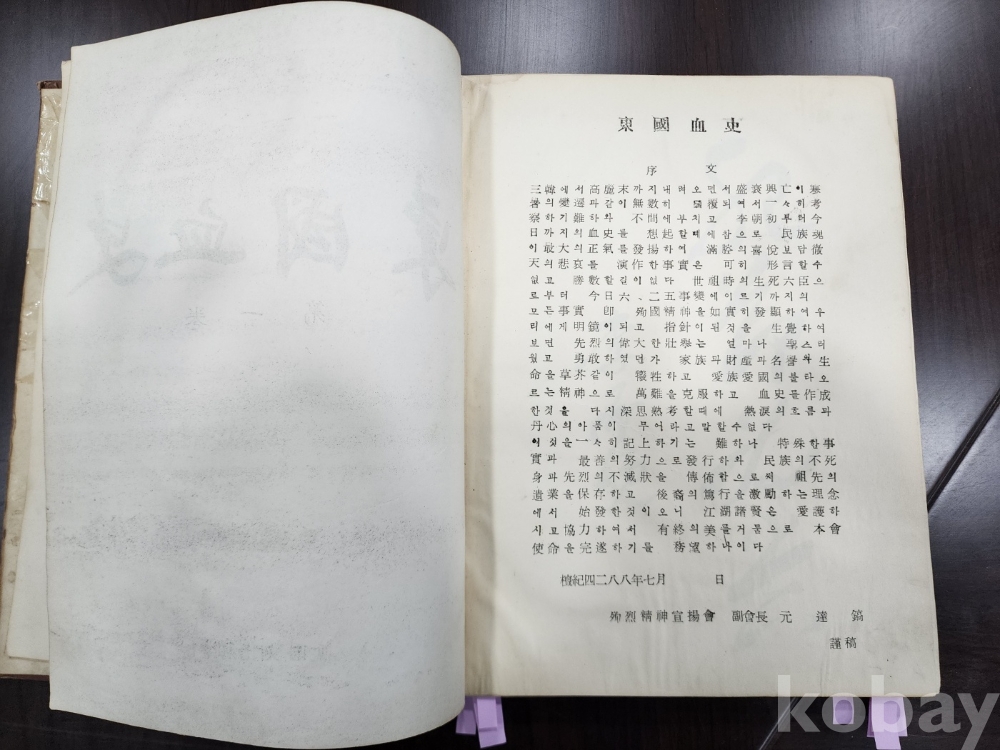 東國血史
序文
三韓에서高麗末까지내려오면서盛衰興亡이無
普의變遷과같이無數히 飜覆되여서一々히考
察하기難하와 不問에부치고 李朝初부터今
日까지의血史를 想起할때에참으로 民族魂
이敢大의正氣를發揚하여 滿腔의喜悅보담徹
天의悲哀를 演作한事實은 可히 形言할수
없고 勝數할길이없다 世祖時의生死六臣으
로부터 今日六、二五事變에이르기까지의
모든事實 即 殉國精神을如實히發顯하여우
리에게明鏡이되고 指針이된것을 生覺하여
보면 先烈의偉大한壯擧는 얼마나 聖스러
웠고 勇敢하였던가 家族과財產과名譽와生
命을草芥같이 犧牲하고 愛族愛國의불타오
르는精神으로 萬難을克服하고 血史를作成
한것을 다시深思熟考할때에 熱淚의흐름과
丹心의아픔이 무어라고말할수없다
이것을一々히記上하기는 難하나 特殊한事
實과 最善의努力으로發行하와 民族의不死
身과先烈의不滅狀을 傳佈함으로써 祖先의
遺業을保存하고 後裔의篤行을激勵하는理念
에서 始發한것이오니 江湖諸賢은 愛護하
시고協力하여서 有終의美를거둠으로 本會
使命을完遂하기를 務望하나이다
檀紀四二八八年七月 日
殉烈精神宣揚會 副會長 元達鎬
謹稿
kobay